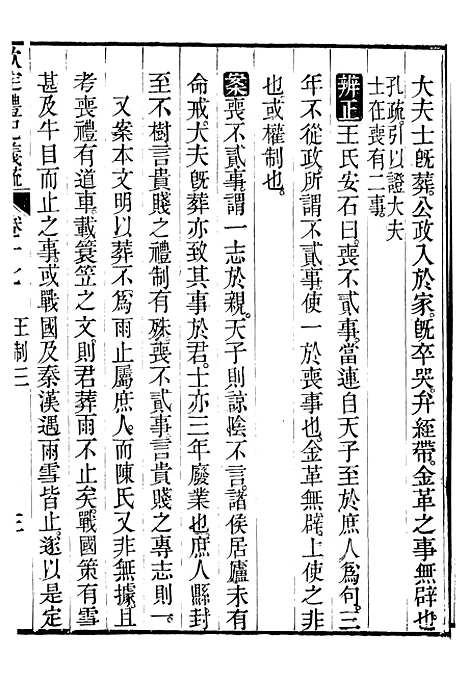 大夫士旣葬公政入於家。旣卒哭。弁絰帶。金革之事無辟也。
孔疏引以證大夫
士在喪有二事。
辨正王氏安石曰。喪不貳事。當連自天子至於庶人爲句。三
年不從政。所謂不貳事。使一於喪事也。金革無辟。上使之非
也。或權制也。
案喪不貳事。謂一志於親。天子則諒陰不言。諸侯居廬未有
命戒。大夫旣葬亦致其事於君。士亦三年廢業也。庶人縣封
至不樹。言貴賤之禮制有殊。喪不貳事。言貴賤之專志則一。
又案本文明以葬不爲雨止屬庶人。而陳氏又非無據。且
考喪禮有道車。載簑笠之文。則君葬雨不止矣。戰國策有雪
甚及牛目而止之事。或戰國及秦漢遇雨雪皆止。遂以是定
欽定禮記義疏
卷十七 王制三
三